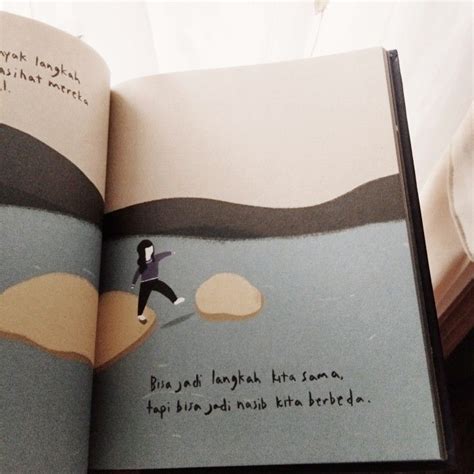 nyak langkah
asihat mereka
l.
Bisa jadi langkah kita sama,
tapi bisa jadi nasib kita berbeda.